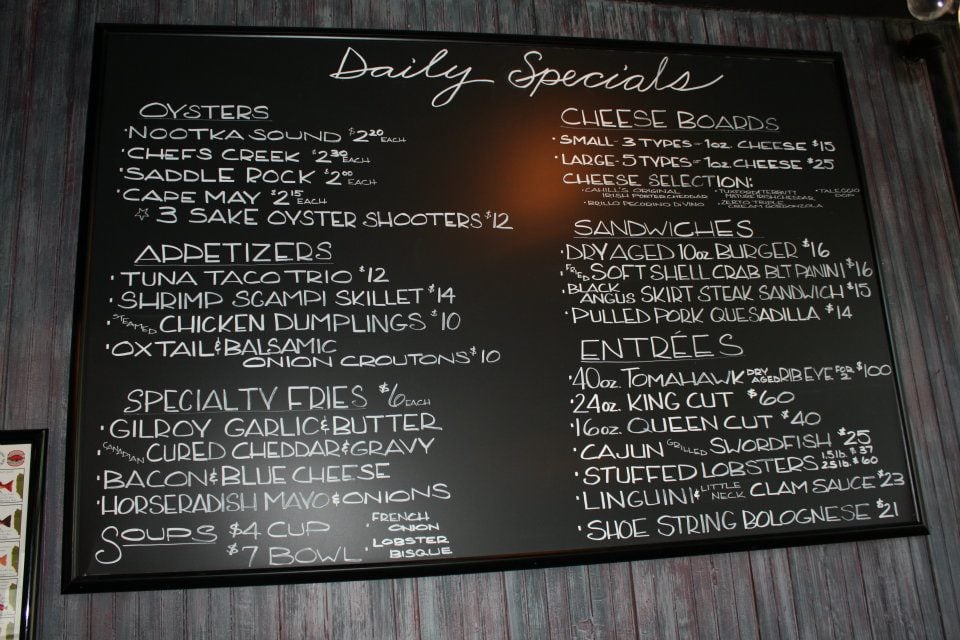 Daily Specials
OYSTERS
·NOOTKA SOUND $2.20 EACH
·CHEFS CREEK $2.30 EACH
·SADDLE ROCK $2.00 EACH
·CAPE MAY $2.15 EACH
☆ 3 SAKE OYSTER SHOOTERS $12
APPETIZERS
·TUNA TACO TRIO $12
·SHRIMP SCAMPI SKILLET $14
·STEAMED CHICKEN DUMPLINGS $10
·OXTAIL & BALSAMIC
ONION CROUTONS $10
SPECIALTY FRIES $6 EACH
·GILROY GARLIC & BUTTER
·CANADIAN CURED CHEDDAR & GRAVY
·BACON & BLUE CHEESE
·HORSERADISH MAYO & ONIONS
SOUPS $4 CUP
$7 BOWL
·FRENCH
ONION
·LOBSTER
BISQUE
CHEESE BOARDS
·SMALL-3 TYPES-1oz. CHEESE $15
·LARGE-5 TYPES-1oz. CHEESE $25
CHEESE SELECTION:
·CAHILL'S ORIGINAL
IRISH PORTER CHEDDAR
·BRILLO PECORINO DI VINO
MATURE IRISH CHEDDAR
·ZERTO TRIPLE
CREAM GORGONZOLA
·TALEGGIO
DOP
SANDWICHES
·DRY AGED 10oz BURGER $16
·FRIED SOFT SHELL CRAB BLT PANINI $16
·BLACK ANGUS SKIRT STEAK SANDWICH $15
·PULLED PORK QUESADILLA $14
ENTRÉES
·40oz. TOMAHAWK DRY AGED RIBEYE FOR 2 $100
·24oz. KING CUT $60
·16oz. QUEEN CUT $40
·CAJUN GRILLED SWORDFISH $25
·STUFFED LOBSTERS 1.5lb. $37
2.5lb. $60
·LINGUINI & LITTLE NECK CLAM SAUCE $23
·SHOE STRING BOLOGNESE $21